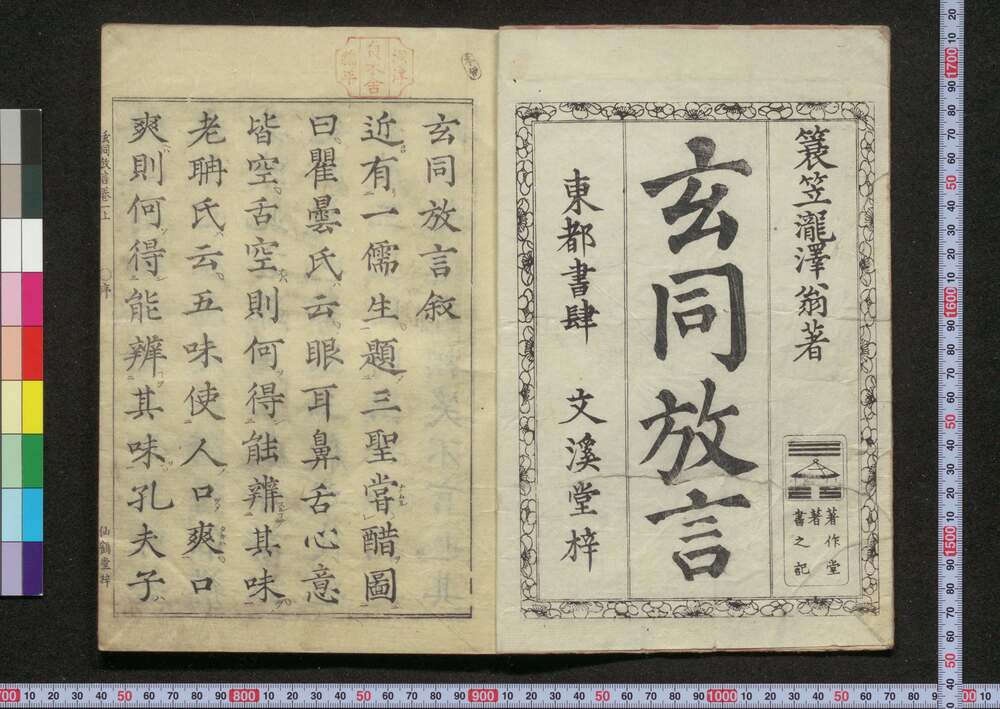 簑笠瀧澤翁著
著作堂
著
書之記
玄同放言
東都書肆 文溪堂梓
玄同放言叙
近有一儒生題三聖嘗醋圖
曰瞿曇氏云眼耳鼻舌心意
皆空舌空則何得能辨其味
老聃氏云五味使人口爽口
爽則何得能辨其味孔夫子
玄同放言卷一上
序
仙鶴堂梓